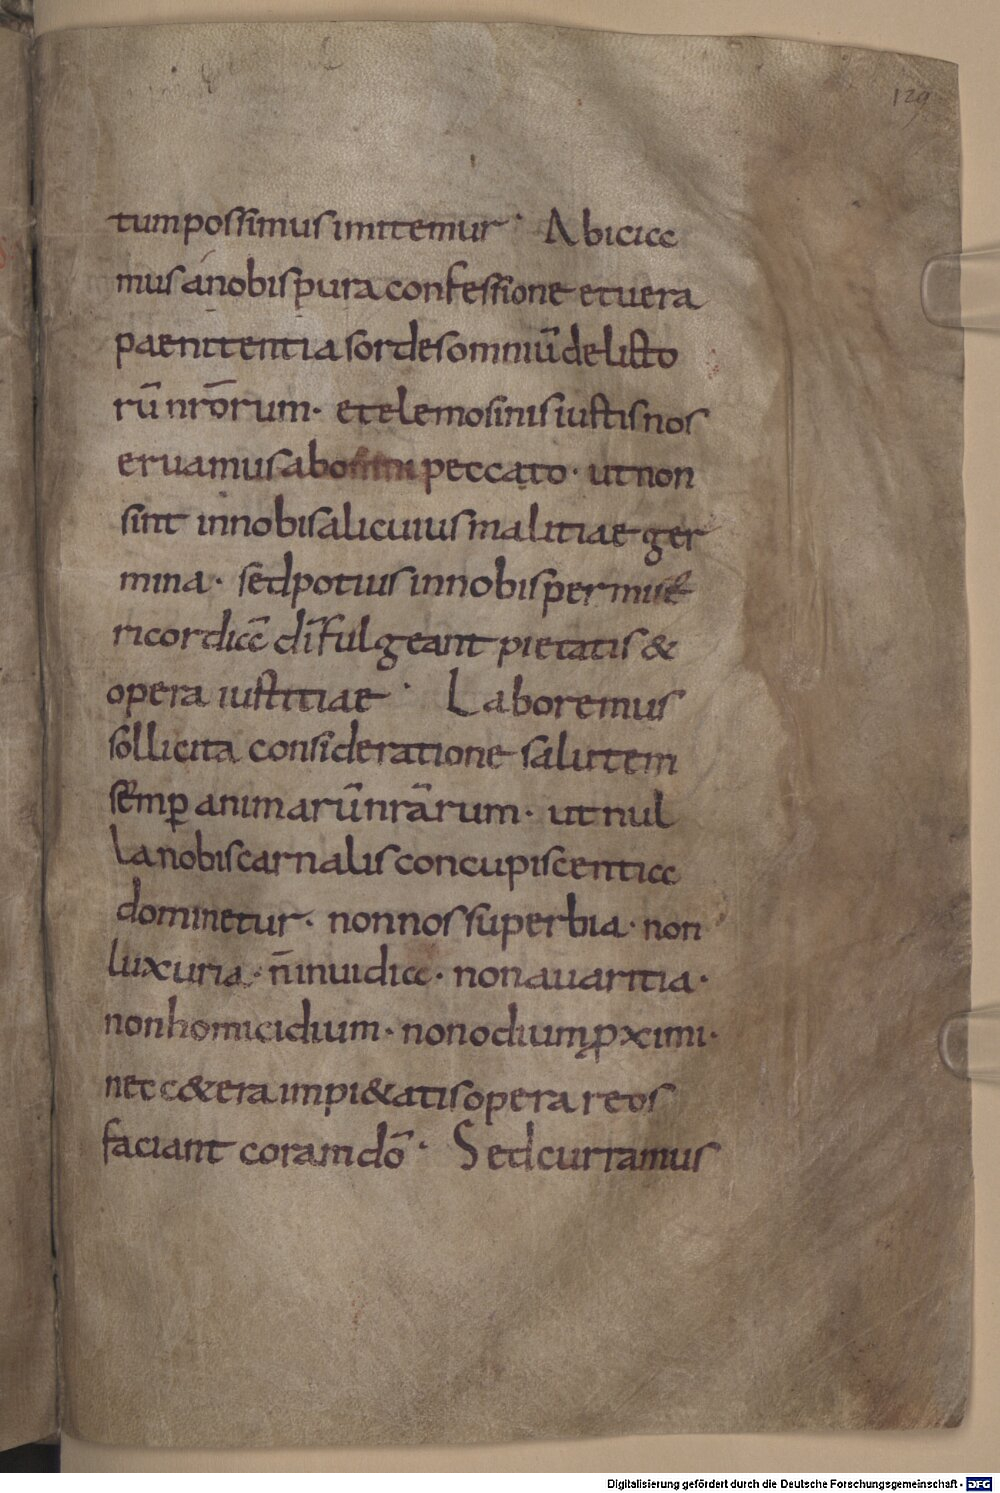 129
tum possimus imitemur · Abicia
mus a nobis pura confessione et uera
paenitentia sordes omniū delicto
rū nr̄orum · et elemosinis iustis nos
eruamus ab omni peccato · ut non
sint in nobis alicuius malitiae ger
mina · sed potius in nobis per mise
ricordia dī fulgeant pietatis &
opera iustitiae · Laboremus
sollicita consideratione salutem
semꝑ animarū nr̄arum · ut nul
la nobis carnalis concupiscentia
dominetur · non nos superbia · non
luxuria · n̄ inuidia · non auaritia ·
non homicidium · non odium ꝓximi ·
nec c&era impi&atis opera reos
faciant coram dō · Sed curramus
Digitalisierung gefördert durch die Deutsche Forschungsgemeinschaft - DFG